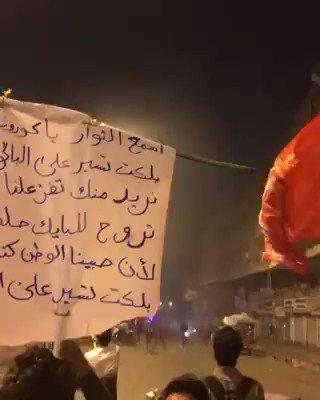 اسمع الثوار ياكورونا
بلكت تسير على الباگ
نريد منك تفزعلنا
تروح للبايك
لأن حبينا الوطن
بلكت تسير على